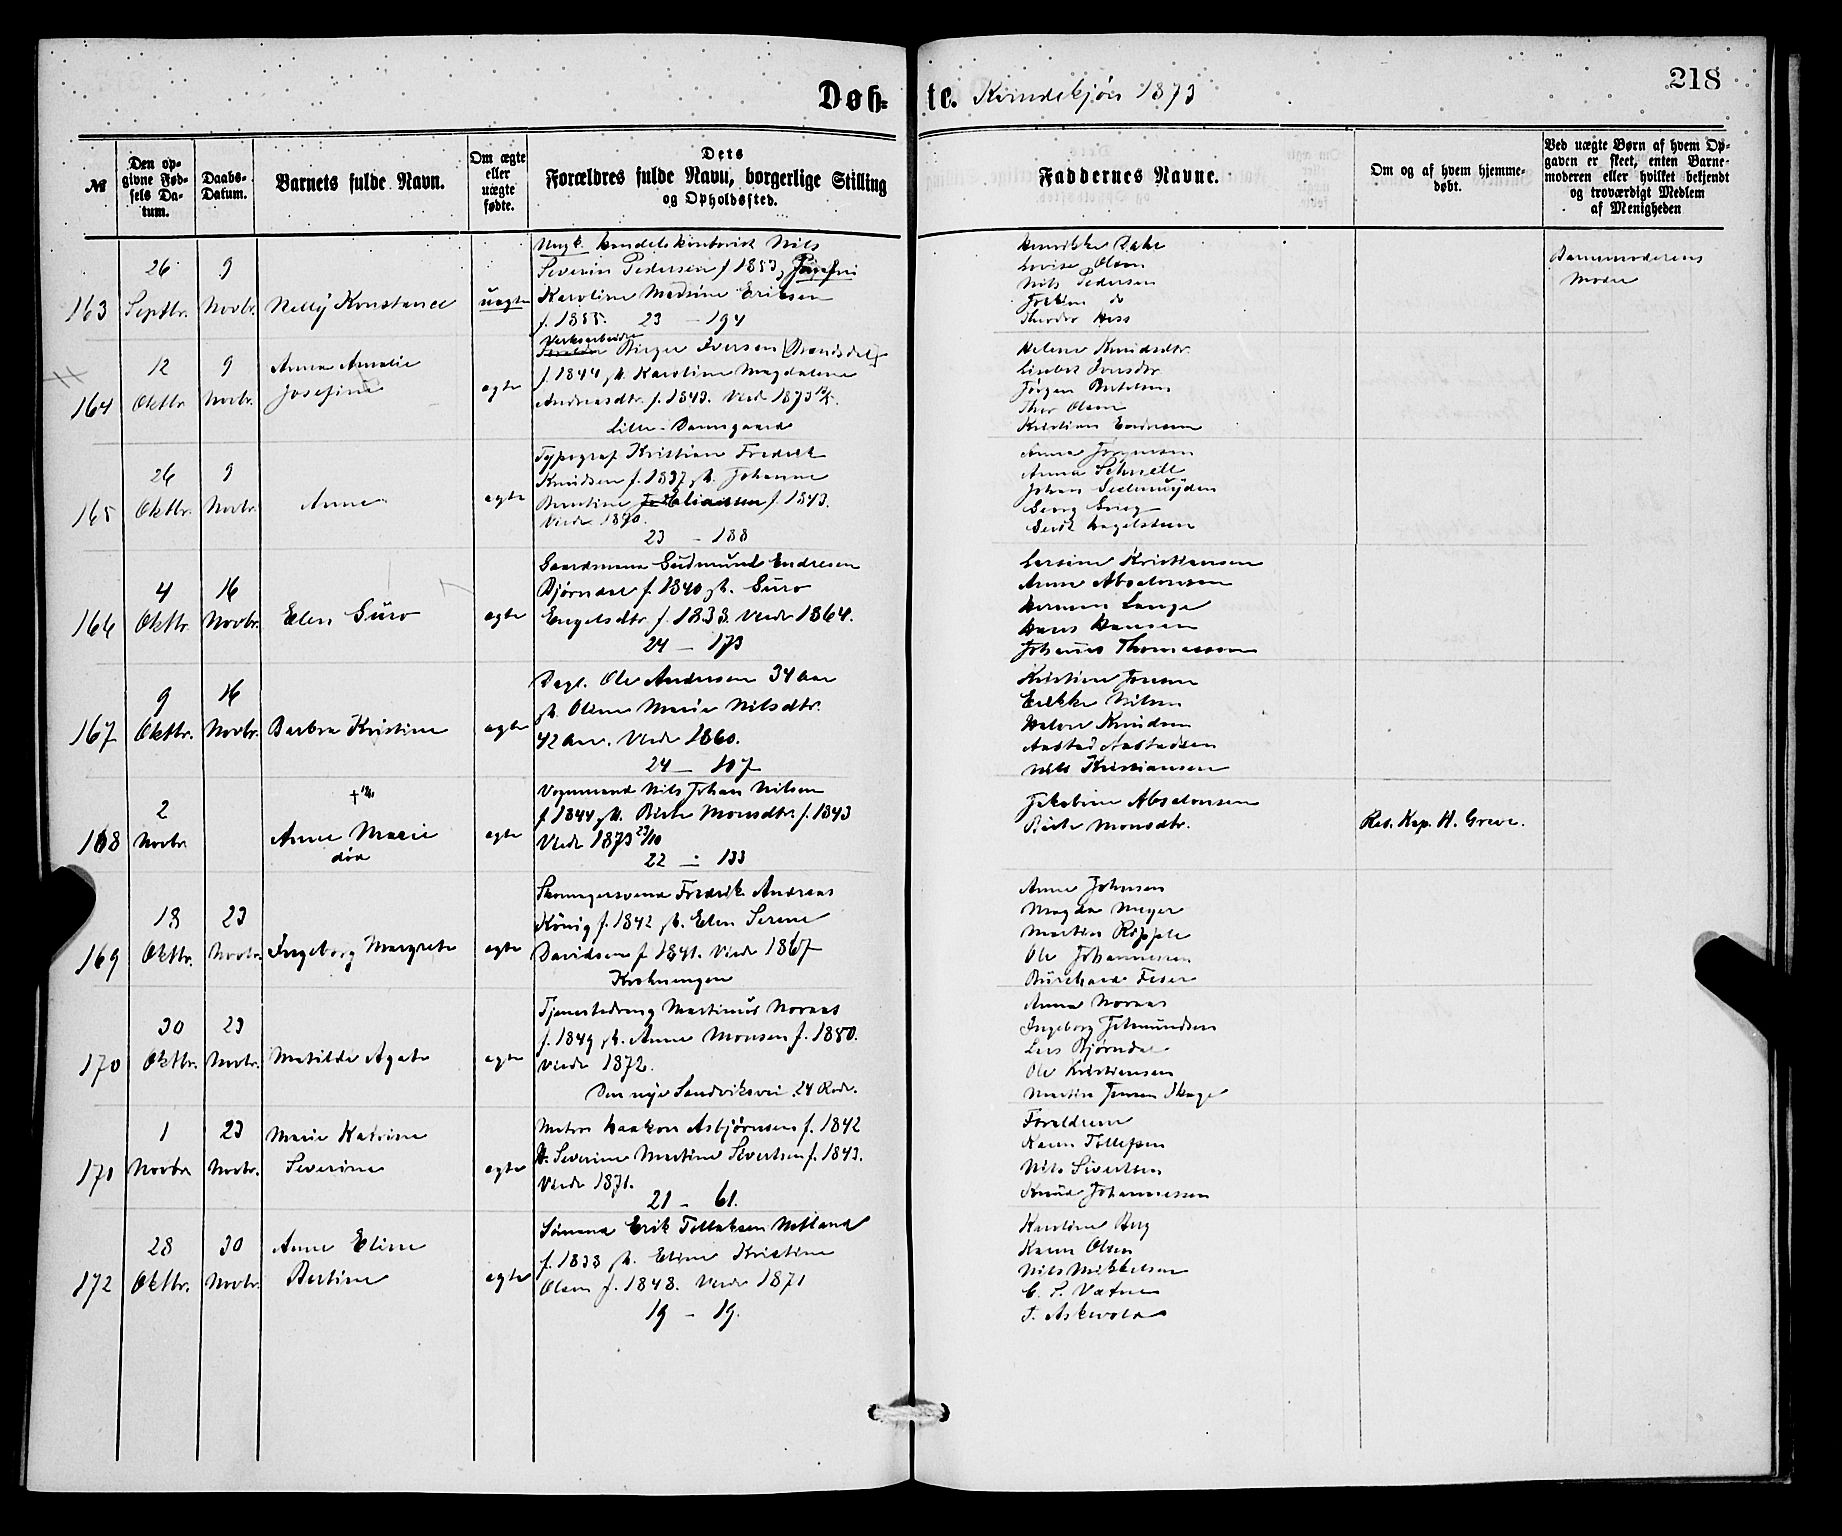 218
Døb- te. Kvindekjøn 1873
№
Den op-
givne Fød-
sels Da-
tum.
Daabs-
Datum.
Barnets fulde Navn.
Om ægte
eller
uægte
fødte.
Dets
Forældres fulde Navn, borgerlige Stilling
og Opholdssted.
Faddernes Navne.
Om og af hvem hjemme-
døbt.
Ved uægte Børn af hvem Op-
gaven er skeet, enten Barne-
moderen eller hvilket bekjendt
og troværdigt Medlem
af Menigheden
163
26
Septbr.
9
Novbr.
Nelly Konstance
uægte
Ungk. Handelskontorist Nils
Severin Pedersen f 1853,
Karoline Madsine Eriksen
f. 1855. 23 - 194
Henrikke
Lovise Olsen
Nils Pedersen
do
Theodor Hess
Barnemoderens
Moder
164
12
Oktbr.
9
Novbr.
Anna Amalie
Josefine
ægte
Verksarbeider
Birger Iversen
f. 1844, h. Karoline Magdalene
Andreasdtr. f. 1843. Viede 1873
Lille-Damsgaard
Helene Knudsdtr.
Lisebet Iversdtr.
Jørgen Bertelsen
Thor Olsen
Kristian
165
26
Oktbr.
9
Novbr.
Anna
ægte
Typograf Kristian Fredrik
Knudsen f. 1837, h. Johanne
Berntine f. 1843.
Viede 1870.
23 - 188
Anna Jørgensen
Anna Schnell
Johan
Georg Grieg
Gerdt Hagelsteen
166
4
Oktbr.
16
Novbr.
Elen Guro
ægte
Gaardmand Gudmund Endresen
Bjørndal f. 1840, h. Guro
Engelsdtr. f. 1838. Viede 1864.
24 - 173
Larsine Kristiansen
Anne Absalonsen
Herman Lange
Hans Hansen
Johannes Thomassen
167
9
Oktbr.
16
Novbr.
Barbra Kristine
ægte
Dagl. Ole Andersen 34 Aar
h. Oline Marie Nilsdtr.
42 Aar. Viede 1860.
24 - 107
Kristine Jensen
Erikke Nilsen
Halvor Knudsen
Aastad Aastadsen
Nils Kristiansen
168
2
Novbr.
Anne Marie
død
ægte
Vognmand Nils Johan Nilsen
f 1844, h. Birte Monsdtr. f. 1843
Viede 1873 23/10
22 - 133
Jakobine Absalonsen
Birte Monsdtr.
Res. Kap. H. Greve.
169
18
Oktbr.
23
Novbr.
Ingeborg Margrete
ægte
Skomagersvend Fredrik Andreas
König f. 1842, h. Elen Serine
Davidsen f 1841. Viede 1867
Krohnengen
Anna Johnsen
Magda Meyer
Martin Ripple
Ole Johannessen
Burchard Feser
170
30
Oktbr.
23
Novbr.
Matilde Agate
ægte
Tjenestedreng Martinus Noraas
f. 1849, h. Anne Monsen f. 1850.
Viede 1872.
Den nye Sandviksvei. 24 Rode.
Anna Noraas
Ingeborg
Lars Bjørndal
Ole Kristiansen
Martin Jensen Skage
171
1
Novbr
23
Novbr.
Marie Katrine
Severine
ægte
Matros Haakon Asbjørnsen f. 1842
h. Severine Martine Sivertsen f. 1843.
Viede 1871.
21 - 61.
Forældrene
Karen Tollefsen
Nils Sivertsen
Knud Johannessen
172
28
Oktbr.
30
Novbr.
Anne Eline
Bertine
ægte
Sømand Erik Tollaksen Netland
f. 1838, h. Eline Kristine
Olsen f. 1848. Viede 1871
19 - 19.
Karoline Berg
Karen Olsen
Nils Mikkelsen
C. S. Vatne
T. Askevold